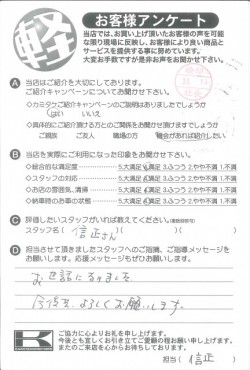 軽
お客様アンケート
当店では、お買い上げ頂いたお客様の声を可能
な限り現場に反映し、お客様により良い商品と
サービスを提供する事に努めています。
大変お手数ですが是非お声をお聞かせ下さい。
A 当店はご紹介を大切にしてあります。
ご紹介キャンペーンについてお聞かせ下さい。
◇カミタケご紹介キャンペーンのご説明はありましたでしょうか
はい いいえ
◇具体的にご紹介頂ける方とのご関係をお聞かせ頂けますでしょうか
ご親族 ご友人 職場の方 機会があれば紹介したい
B 当店を実際にご利用になった印象をお聞かせ下さい。
◇総合的な満足度 5.大満足 4.満足 3.ふつう 2.やや不満 1.不満
◇スタッフの対応 5.大満足 4.満足 3.ふつう 2.やや不満 1.不満
◇お店の雰囲気、清掃 5.大満足 4.満足 3.ふつう 2.やや不満 1.不満
◇納車時のお車の状態 5.大満足 4.満足 3.ふつう 2.やや不満 1.不満
C 評価したいスタッフがいれば教えてください。(複数回答可)
スタッフ名( 信正さん )( )
D 担当させて頂きましたスタッフへのご指摘、ご指導メッセージを
お願いします。応援メッセージもぜひお願いします。
お世話になりました
今後も、よろしくお願いします。
K
ご協力に心よりお礼を申し上げます。
今後とも宜しくお引き立てご愛顧の程お願い申し上げます。
またのご来店を心からお待ちしております。
担当( 信正 )